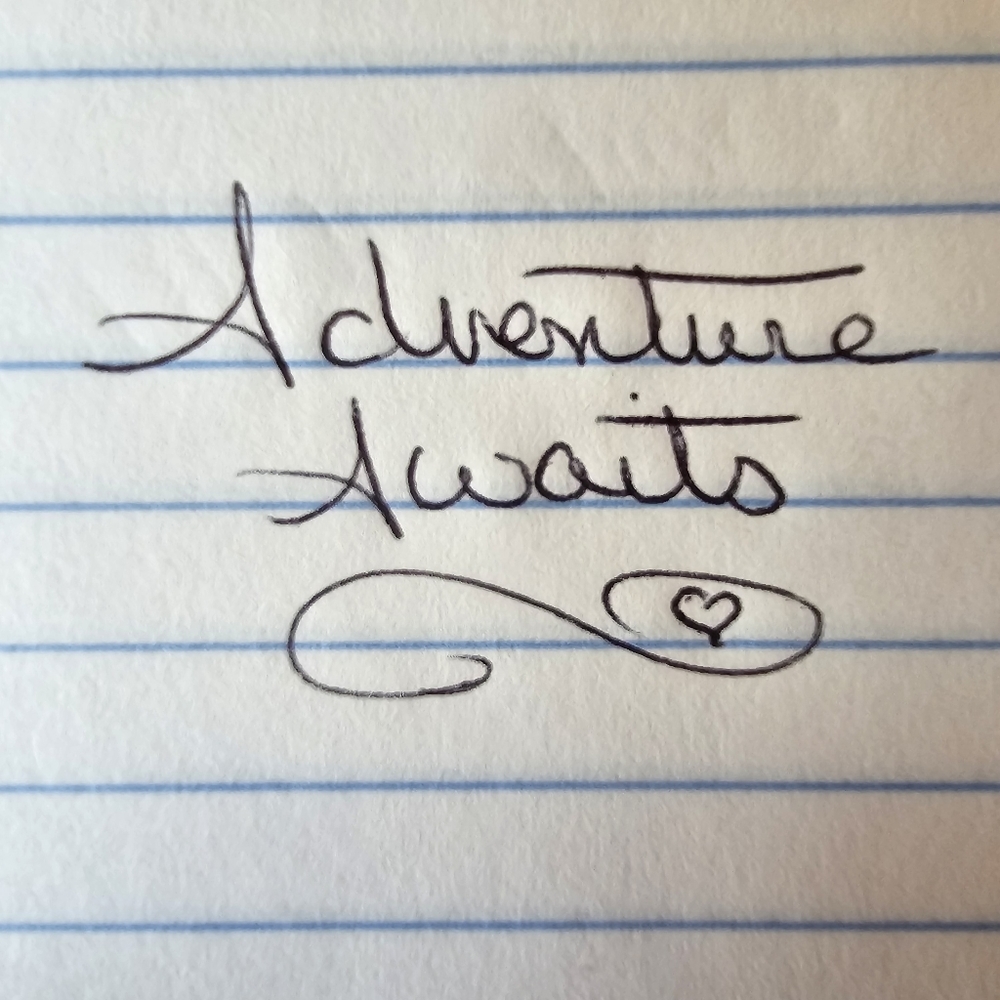 Adventure
Awaits